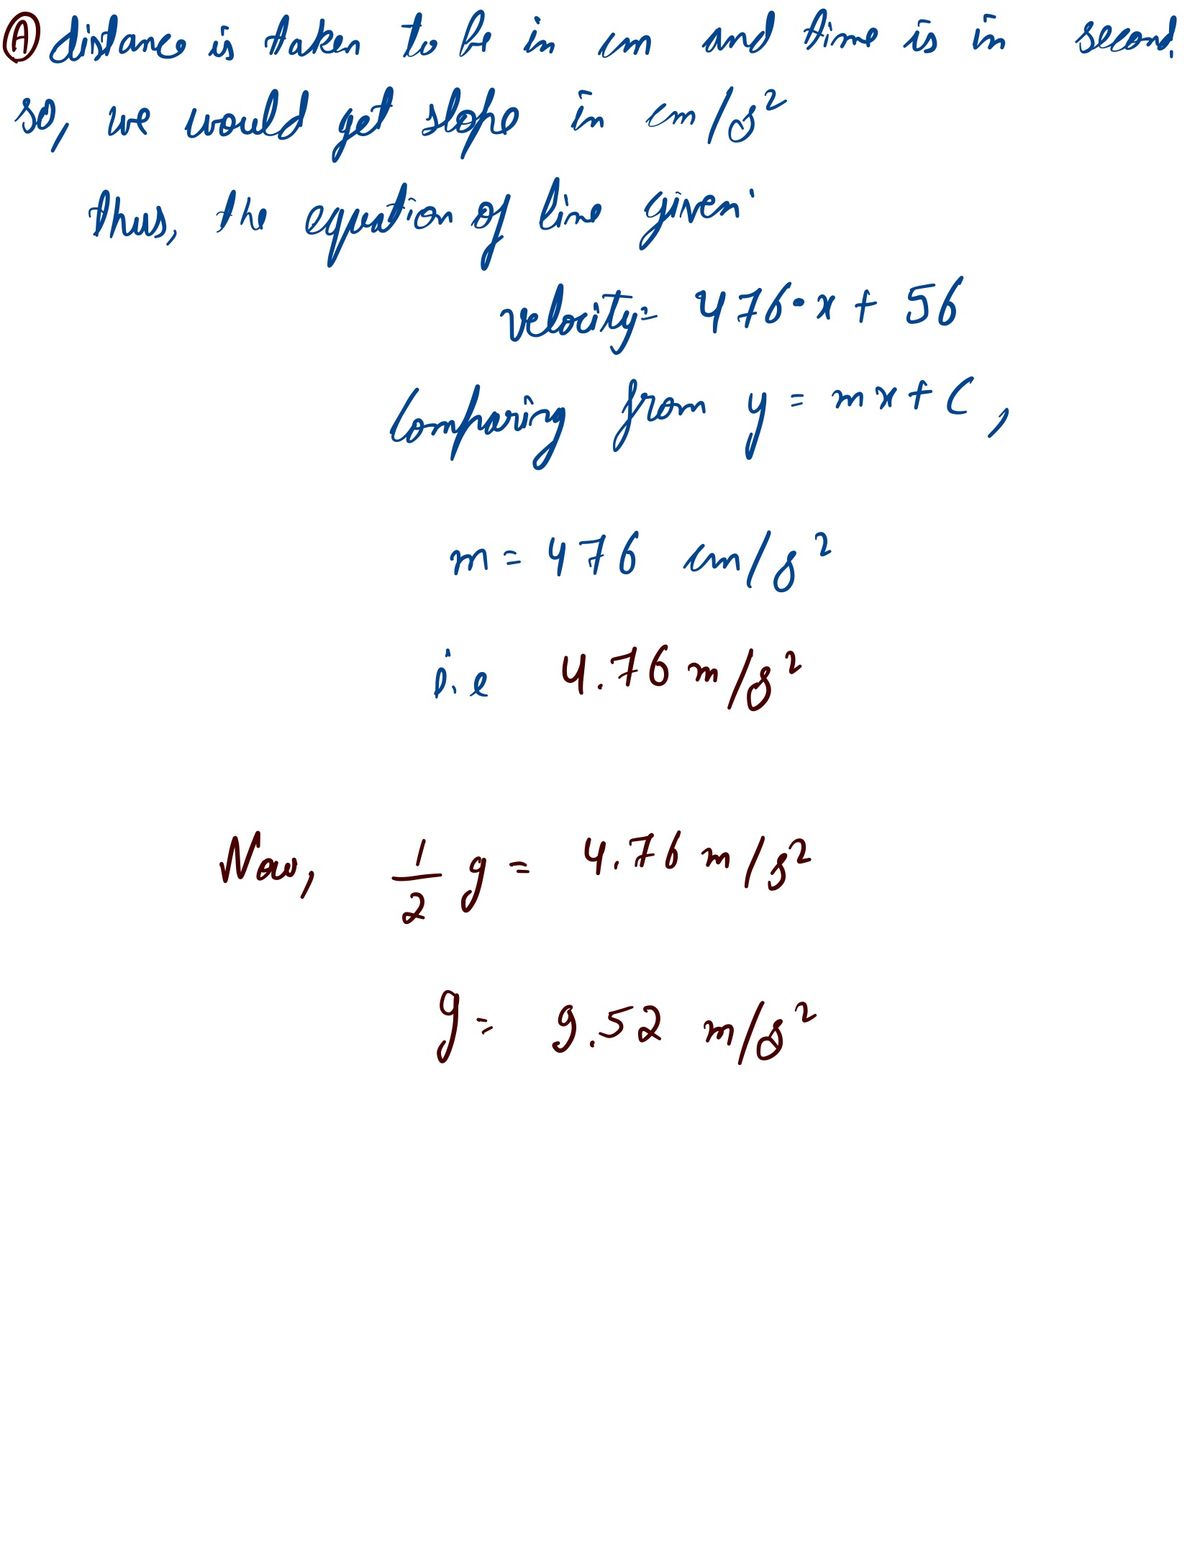 Ⓐ distance is taken to be in cm and time is in second.
so, we would get slope in cm/s²
thus, the equation of line given
velocity = 476·x + 56
Comparing from y = mx + C,
m = 476 cm/s²
i.e 4.76 m/s²
Now, 1/2 g = 4.76 m/s²
g = 9.52 m/s²